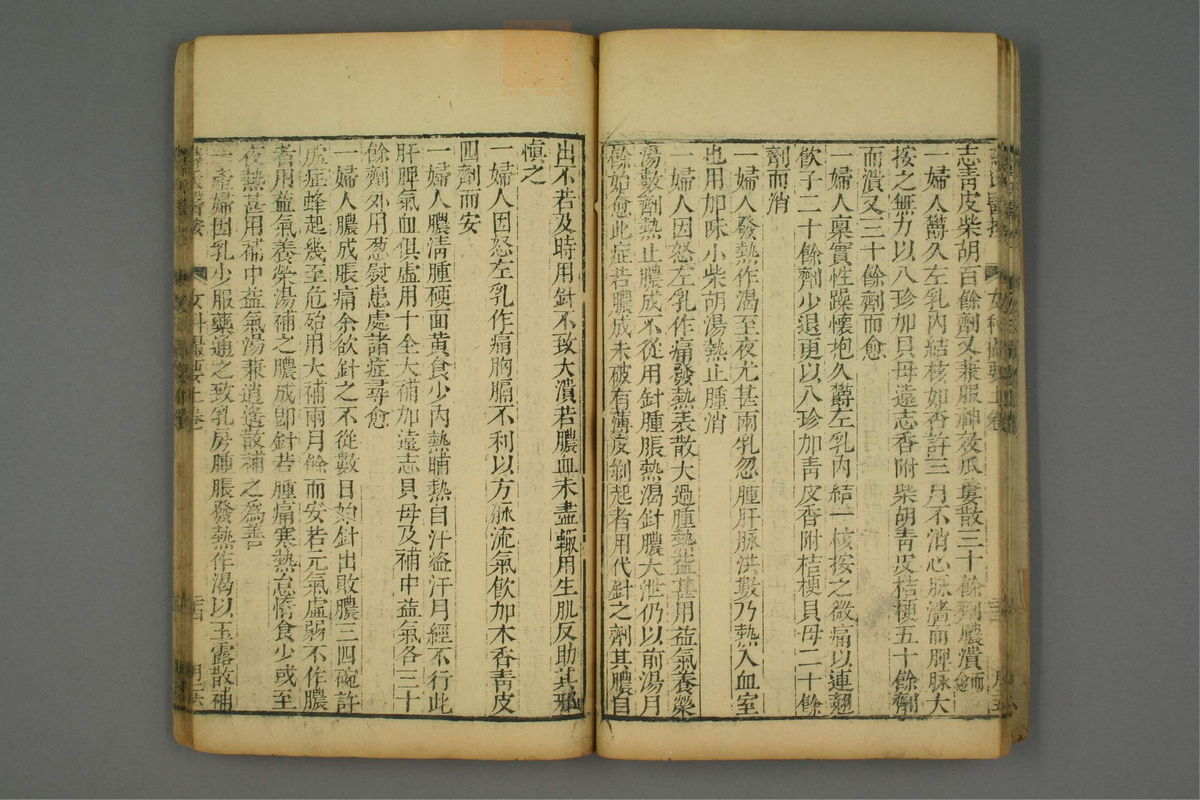 志靑皮柴胡百餘劑又兼服神效瓜蔞散三十餘劑膿潰而愈
一婦人欝久左乳內結核如杏許三月不消心脉濇而脾脉大
按之無力以八珍加貝母遠志香附柴胡靑皮桔梗五十餘劑
而潰又三十餘劑而愈
一婦人稟實性躁懷抱久欝左乳內結一核按之微痛以連翹
飮子二十餘劑少退更以八珍加靑皮香附桔梗貝母二十餘
劑而消
一婦人發熱作渴至夜尤甚兩乳忽腫肝脉洪數乃熱入血室
也用加味小柴胡湯熱止腫消
一婦人因怒左乳作痛發熱表散大過腫熱益甚用益氣養榮
湯數劑熱止膿成不從用針腫脹熱渴針膿大泄仍以前湯月
餘始愈此症若膿成未破有薄皮剝起者用代針之劑其膿自
出不若及時用針不致大潰若膿血未盡輙用生肌反助其邪
愼之
一婦人因怒左乳作痛胸膈不利以方脉流氣飮加木香靑皮
四劑而安
一婦人膿淸腫硬面黃食少內熱晡熱自汗盜汗月經不行此
肝脾氣血俱虛用十全大補加遠志貝母及補中益氣各三十
餘劑外用葱熨患處諸症尋愈
一婦人膿成脹痛余欲針之不從數日始針出敗膿三四碗許
虛症蜂起幾至危殆用大補兩月餘而安若元氣虛弱不作膿
者用益氣養榮湯補之膿成卽針若腫痛寒熱怠惰食少或至
夜熱甚用補中益氣湯兼逍遙散補之爲善
一產婦因乳少服藥通之致乳房腫脹發熱作渴以玉露散補
薛氏醫按
女科撮要上卷